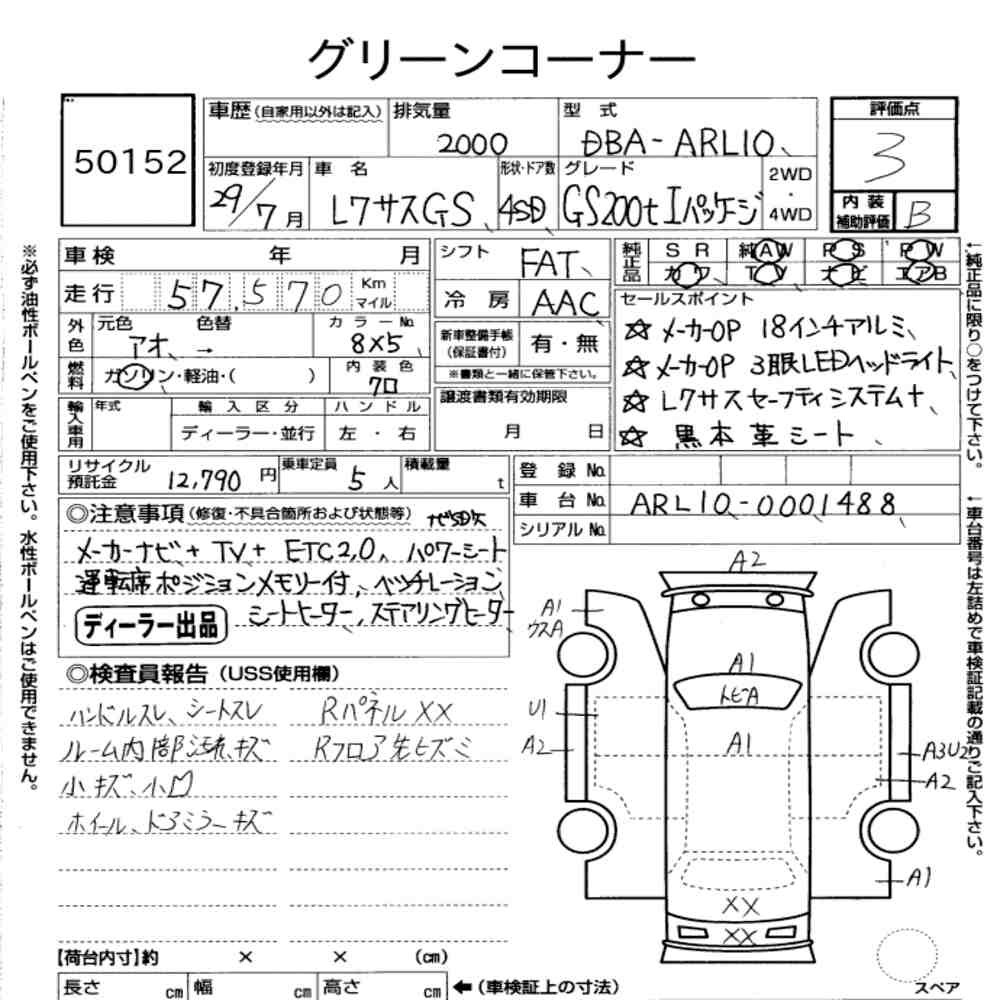 グリーンコーナー
50152
車歴(自家用以外は記入) 排気量 2000 型式 DBA-ARL10
評価点 3
初度登録年月 29/7月 車名 L7サスGS 形状・ドア数 4SD グレード GS200t Iパッケージ 2WD・4WD
内装補助評価 B
※必ず油性ボールペンをご使用下さい。水性ボールペンはご使用できません。
車検 年 月
走行 57,570 Km マイル
外色 元色 アオ 色替 → カラーNo. 8X5
燃料 ガソリン・軽油・( ) 内装色 クロ
輸入車用 年式 輸入区分 ディーラー・並行 ハンドル 左・右
シフト FAT
冷房 AAC
新車整備手帳(保証書付) 有・無
※書類と一緒に保管下さい。
譲渡書類有効期限
月 日
純正品 SR 純AW PS PW
カワ TV ナビ エアB
セールスポイント
☆メーカーOP 18インチアルミ、
☆メーカーOP 3眼LEDヘッドライト
☆L7サスセーフティシステム+、
☆黒本革シート、
←純正品に限り○をつけて下さい。
リサイクル預託金 12,790円 乗車定員 5人 積載量 t
登録No.
車台No. ARL10-0001488
シリアルNo.
←車台番号は左詰めで車検証記載の通りご記入下さい。
◎注意事項(修復・不具合箇所および状態等) ナビSD欠
メーカーナビ+TV+ETC2.0、パワーシート
運転席ポジションメモリー付、ベンチレーション
ディーラー出品 シートヒーター、ステアリングヒーター
◎検査員報告(USS使用欄)
ハンドルスレ、シートスレ RパネルXX
ルーム内部汚れ、キズ Rフロア先ヒズミ
小キズ、小凹
ホイール、ドアミラーキズ
A2
A1
ウスA
A1
トビA
U1
A2
A1
A3U2
A2
A1
XX
XX
スペア
【荷台内寸】約 × × (cm)
長さ cm 幅 cm 高さ cm ←(車検証上の寸法)